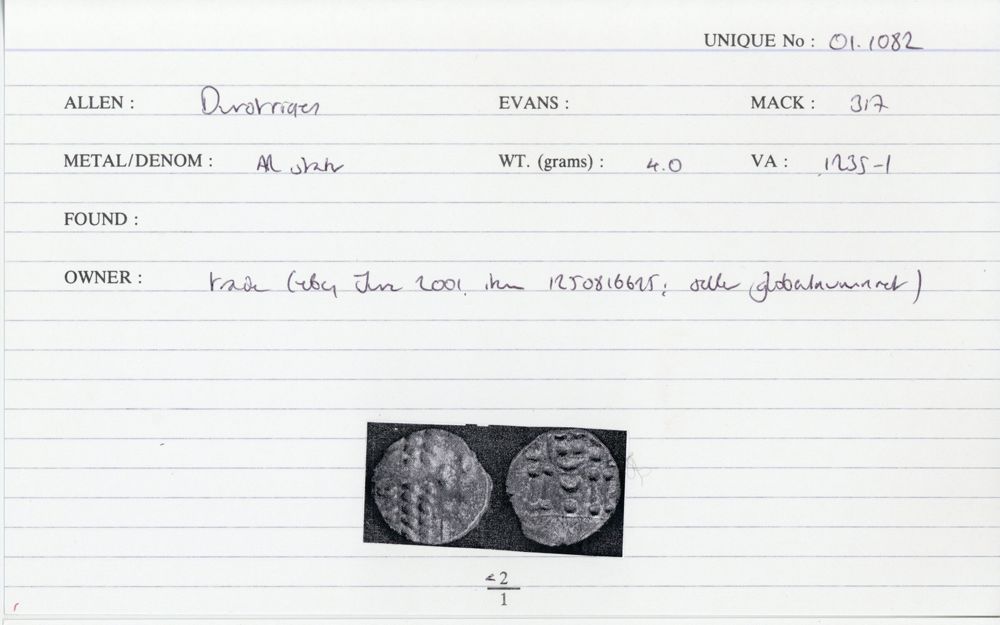 UNIQUE No : 01.1082
ALLEN : Durotriges EVANS : MACK : 317
METAL/DENOM : AR stater WT. (grams) : 4.0 VA : 1235-1
FOUND :
OWNER : trade (eBay June 2001, item 1250816625; seller globalnumnet)
<2
1